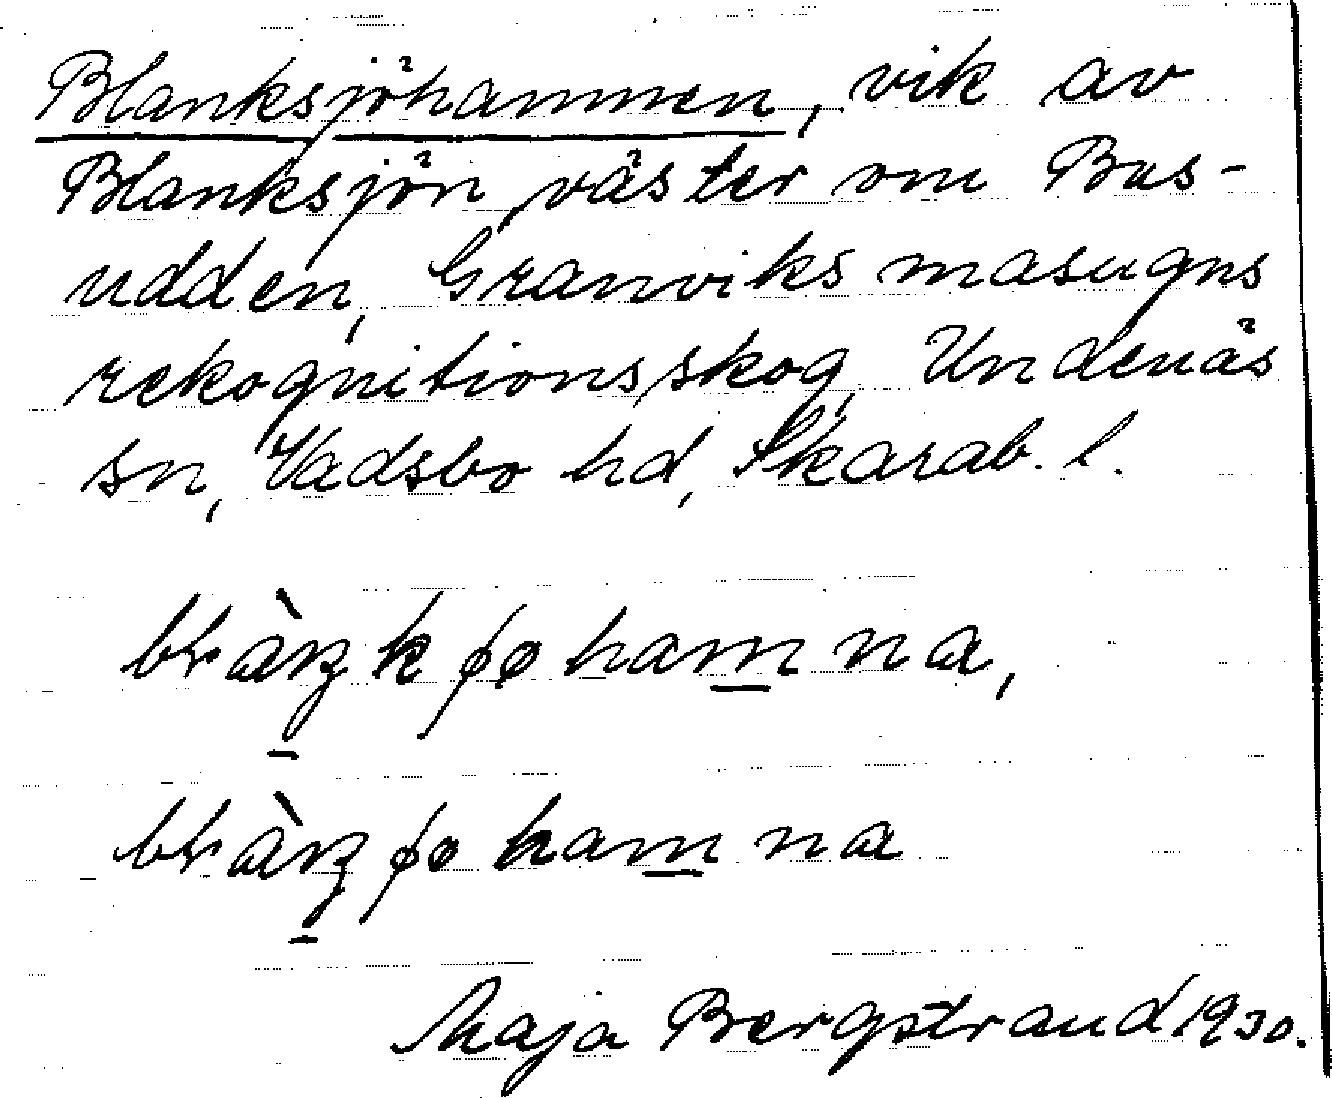 Blanksjöhamnen, vik av
Blanksjön, väster om Bus-
udden, Granviks masugns
rekognitionsskog, Undenäs
sn, Vadsbo hd, Skarab. l.
Maja Bergstrand 1930.